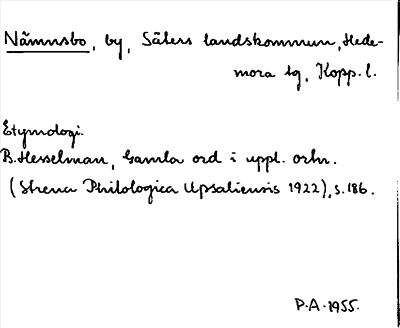 Nämnsbo, by, Säters landskommun, Hede-
mora tg, Kopp. l.
Etymologi.
B. Hesselman, Gamla ord i uppl. ortn.
(Strena Philologica Upsaliensis 1922), s. 186.
P.A. 1955.